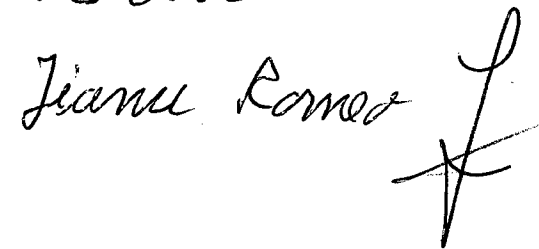 Tianu Romeo